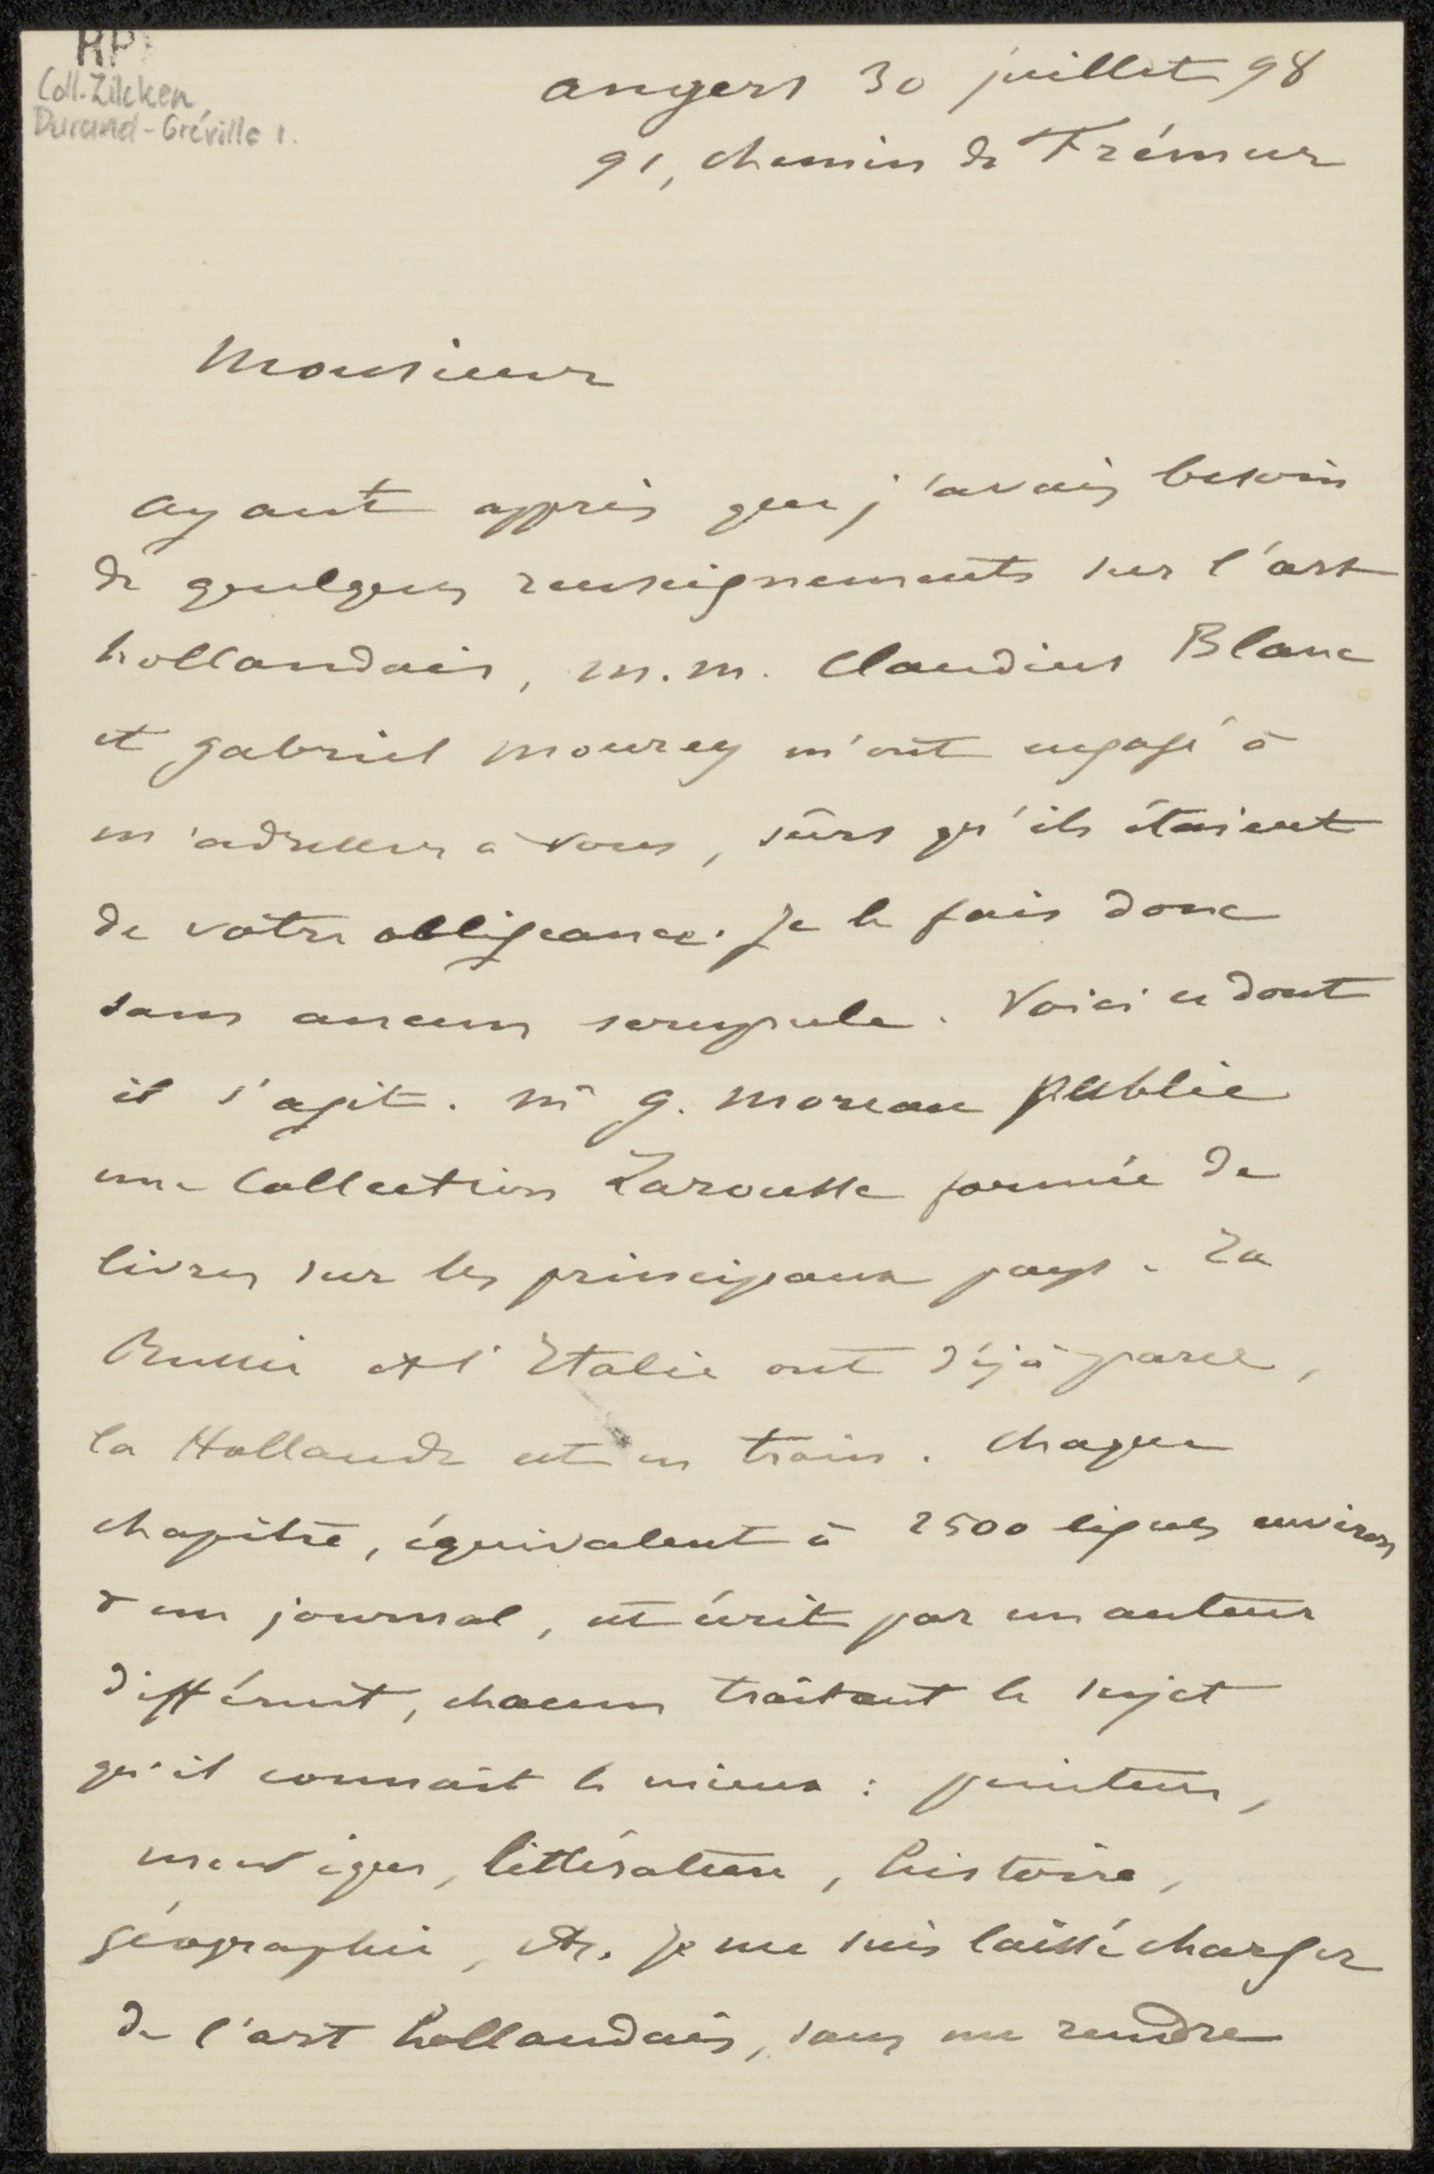 RP
Coll. Zilcken
Durand-Gréville 1.
Angers 30 juillet 98
91, chemin de Frémur
Monsieur
Ayant appris que j'avais besoin
de quelques renseignements sur l'art
hollandais, M.M. Claudius Blanc
et Gabriel Mourey m'ont engagé à
m'adresser à vous, sûrs qu'ils étaient
de votre obligeance. Je le fais donc
sans aucun scrupule. Voici ce dont
il s'agit. Mr G. Moreau publie
une Collection Larousse formée de
livres sur les principaux pays. La
Russie et l'Italie ont déjà paru,
la Hollande est en train. Chaque
chapitre, équivalent à 2500 lignes environ
d'un journal, est écrit par un auteur
différent, chacun traitant le sujet
qu'il connaît le mieux : peinture,
musique, littérature, histoire,
géographie, etc. Je me suis laissé charger
de l'art hollandais, sans me rendre